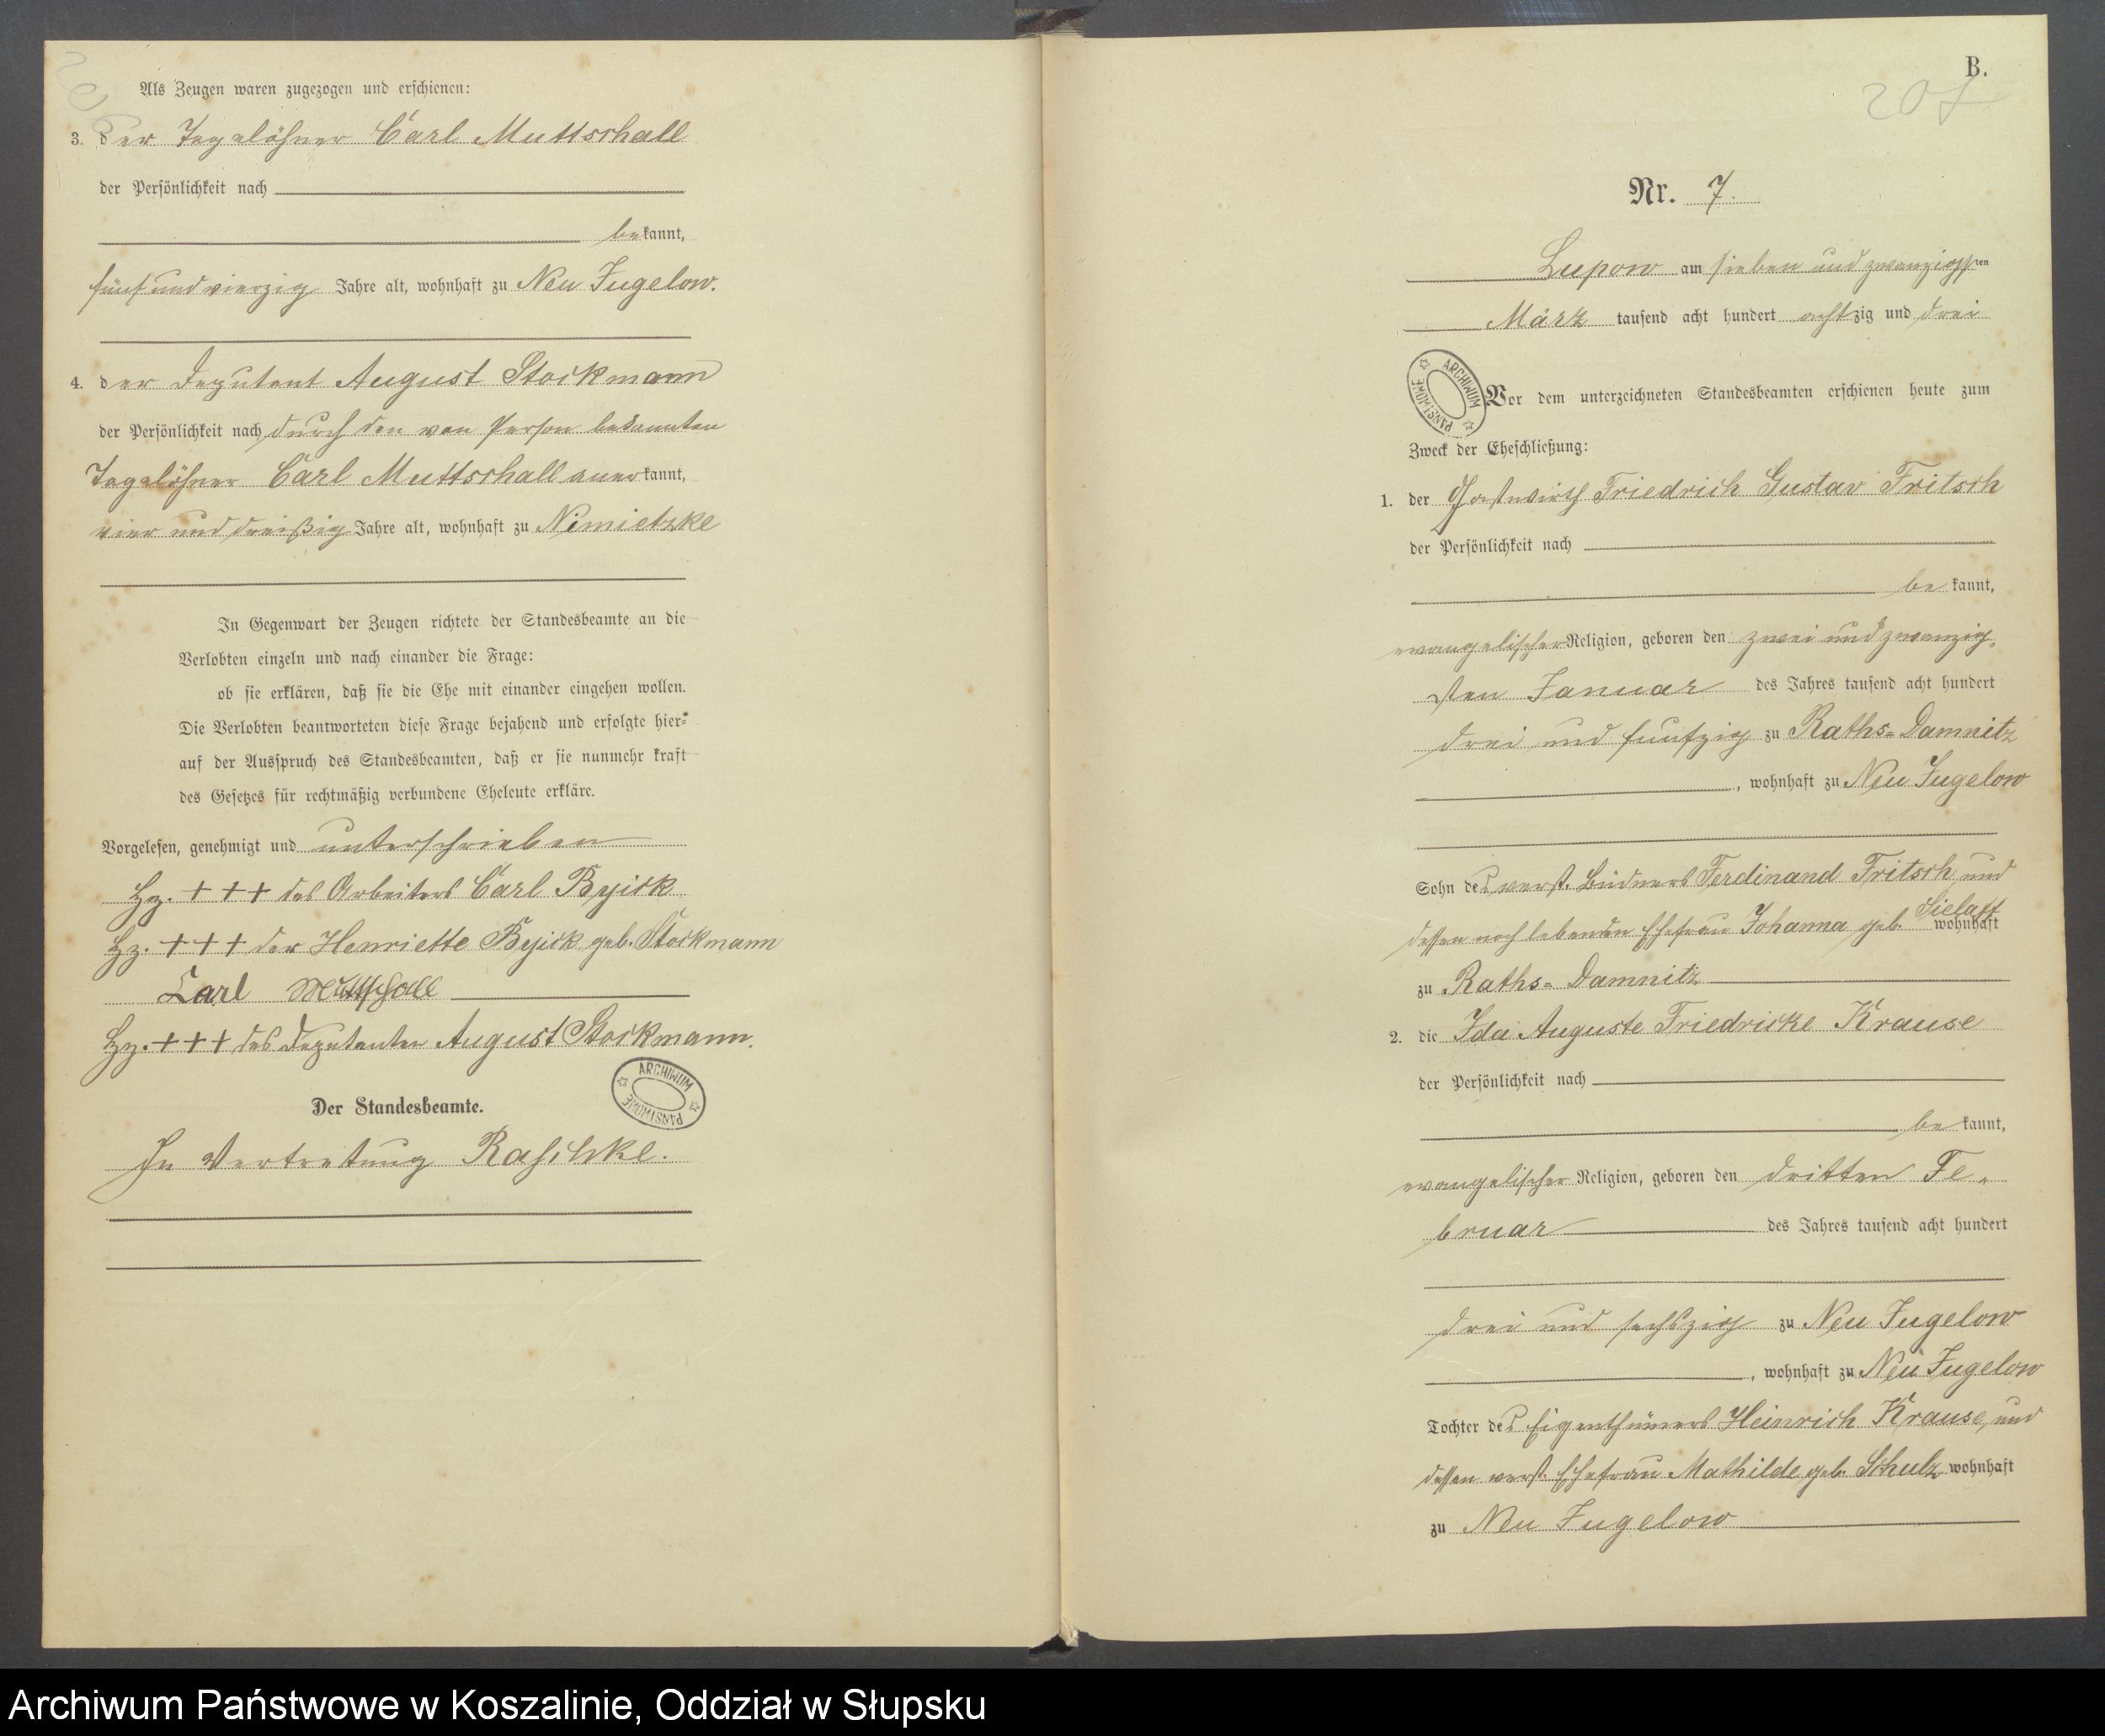 Als Zeugen waren zugezogen und erschienen:
3. der Tagelöhner Carl Muttschall
der Persönlichkeit nach
bekannt,
fünf und vierzig Jahre alt, wohnhaft zu Neu Jugelow.
4. der Deputant August Stockmann
der Persönlichkeit nach durch den von Person bekannten
Tagelöhner Carl Muttschall anerkannt,
vier und dreißig Jahre alt, wohnhaft zu Nimietzke
In Gegenwart der Zeugen richtete der Standesbeamte an die
Verlobten einzeln und nach einander die Frage:
ob sie erklären, daß sie die Ehe mit einander eingehen wollen.
Die Verlobten beantworteten diese Frage bejahend und erfolgte hier-
auf der Ausspruch des Standesbeamten, daß er sie nunmehr kraft
des Gesetzes für rechtmäßig verbundene Eheleute erkläre.
Vorgelesen, genehmigt und unterschrieben
Hz. +++ des Arbeiters Carl Byick
Hz. +++ der Henriette Byick geb. Stockmann
Carl Muttschall
Hz. +++ des Deputanten August Stockmann.
ARCHIWUM PAŃSTWOWE
Der Standesbeamte.
In Vertretung Raschke.
B.
207
Nr. 7.
Lupow am sieben und zwanzigsten
März tausend acht hundert achtzig und drei
ARCHIWUM PAŃSTWOWE
Vor dem unterzeichneten Standesbeamten erschienen heute zum
Zweck der Eheschließung:
1. der Gastwirth Friedrich Gustav Fritsch
der Persönlichkeit nach
be kannt,
evangelischer Religion, geboren den zwei und zwanzig-
sten Januar des Jahres tausend acht hundert
drei und funfzig zu Raths-Damnitz
, wohnhaft zu Neu Jugelow
Sohn des verst. Büdners Ferdinand Fritsch und
dessen noch lebenden Ehefrau Johanna geb. Sielaff wohnhaft
zu Raths-Damnitz
2. die Ida Auguste Friedricke Krause
der Persönlichkeit nach
be kannt,
evangelischer Religion, geboren den dritten Fe-
bruar des Jahres tausend acht hundert
drei und sechszig zu Neu Jugelow
, wohnhaft zu Neu Jugelow
Tochter des Eigenthümers Heinrich Krause, und
dessen verst. Ehefrau Mathilde geb. Schulz wohnhaft
zu Neu Jugelow
Archiwum Państwowe w Koszalinie, Oddział w Słupsku